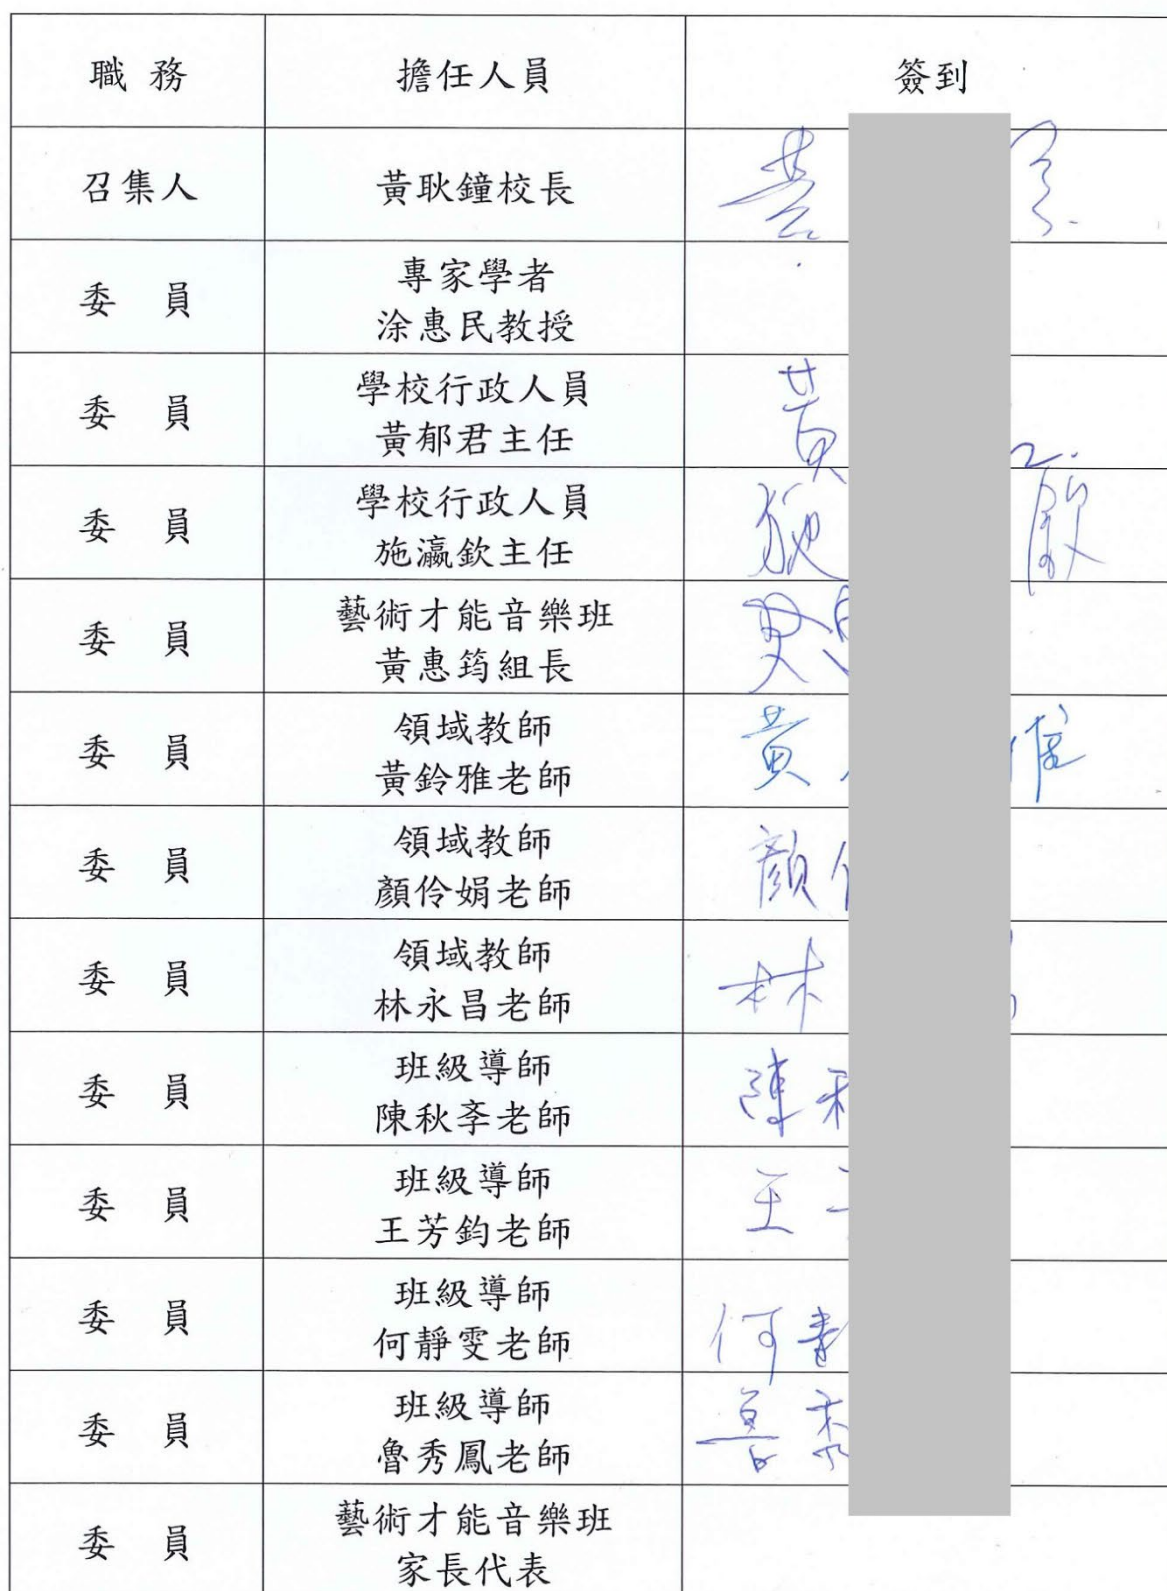 職 務 擔任人員 簽到
召集人 黃耿鐘校長 黃
委 員 專家學者
涂惠民教授
委 員 學校行政人員
黃郁君主任 黃
委 員 學校行政人員
施瀛欽主任 施 欽
委 員 藝術才能音樂班
黃惠筠組長 黃
委 員 領域教師
黃鈴雅老師 黃 雅
委 員 領域教師
顏伶娟老師 顏
委 員 領域教師
林永昌老師 林
委 員 班級導師
陳秋李老師 陳
委 員 班級導師
王芳鈞老師 王
委 員 班級導師
何靜雯老師 何
委 員 班級導師
魯秀鳳老師 魯 秀
委 員 藝術才能音樂班
家長代表